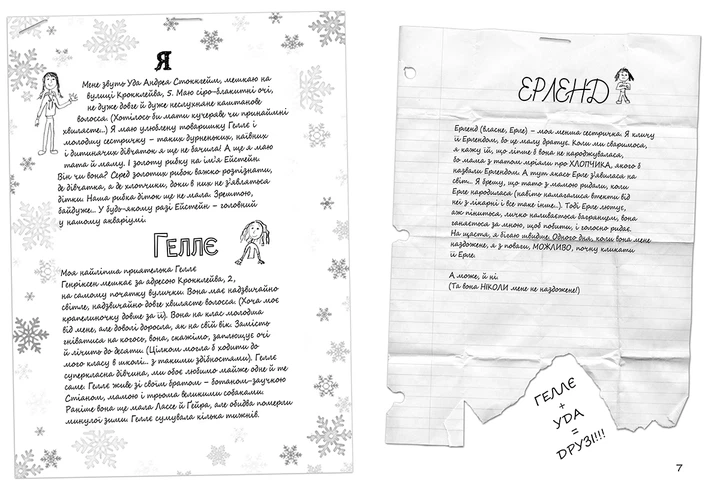 Я
Мене звуть Уда Андреа Стокклейм, мешкаю на
вулиці Крокклейва, 5. Маю сіро-блакитні очі,
не дуже довге й дуже неслухняне каштанове
волосся. (Хотілось би мати кучеряве чи принаймні
хвилясте…) Я маю улюблену товаришку Геллє і
молодшу сестричку – таких дурненьких, наївних
і дитинячих дівчаток я ще не бачила! А ще я маю
тата й маму. І золоту рибку на ім'я Ейстейн.
Він чи вона? Серед золотих рибок важко розпізнати,
де дівчатка, а де хлопчики, доки в них не з'являться
дітки. Наша рибка діток ще не мала. Зрештою,
байдуже… У будь-якому разі Ейстейн – головний
у нашому акваріумі.
Геллє
Моя найліпша приятелька Геллє
Генріксен мешкає за адресою Крокклейва, 2,
на самому початку вулички. Вона має надзвичайно
світле, надзвичайно довге хвилясте волосся. (Хоча моє
крапелиночку довше за її). Вона на клас молодша
від мене, але доволі доросла, як на свій вік. Замість
гніватися на когось, вона, скажімо, заплющує очі
й лічить до десяти. (Цілком могла б ходити до
мого класу в школі… з такими здібностями). Геллє
суперкласна дівчина, ми обоє любимо майже одне й те
саме. Геллє живе зі своїм братом – ботаном-заучкою
Стіаном, мамою і трьома великими собаками.
Раніше вона ще мала Лассе й Гейра, але обидва померли
минулої зими. Геллє сумувала кілька тижнів.
ЕРЛЕНД
Ерленд (власне, Ерле) – моя менша сестричка. Я кличу
її Ерлендом, бо це малу дратує. Коли ми сваримося,
я кажу їй, що ліпше б вона не народжувалася,
бо мама з татом мріяли про ХЛОПЧИКА, якого б
назвали Ерлендом. А тут якась Ерле з'явилася на
світ… Я брешу, що тато з мамою ридали, коли
Ерле народилася (навіть намагалися втекти від
неї з лікарні і все таке інше…). Тоді Ерле лютує,
аж піниться, личко наливається багрянцем, вона
ганяється за мною, щоб побити, і голосно ридає.
На щастя, я бігаю швидше. Одного дня, коли вона мене
наздожене, я з поваги, МОЖЛИВО, почну кликати
її Ерле.
А може, й ні.
(Та вона НІКОЛИ мене не наздожене!)
ГЕЛЛЄ
+
УДА
=
ДРУЗІ!!!
7